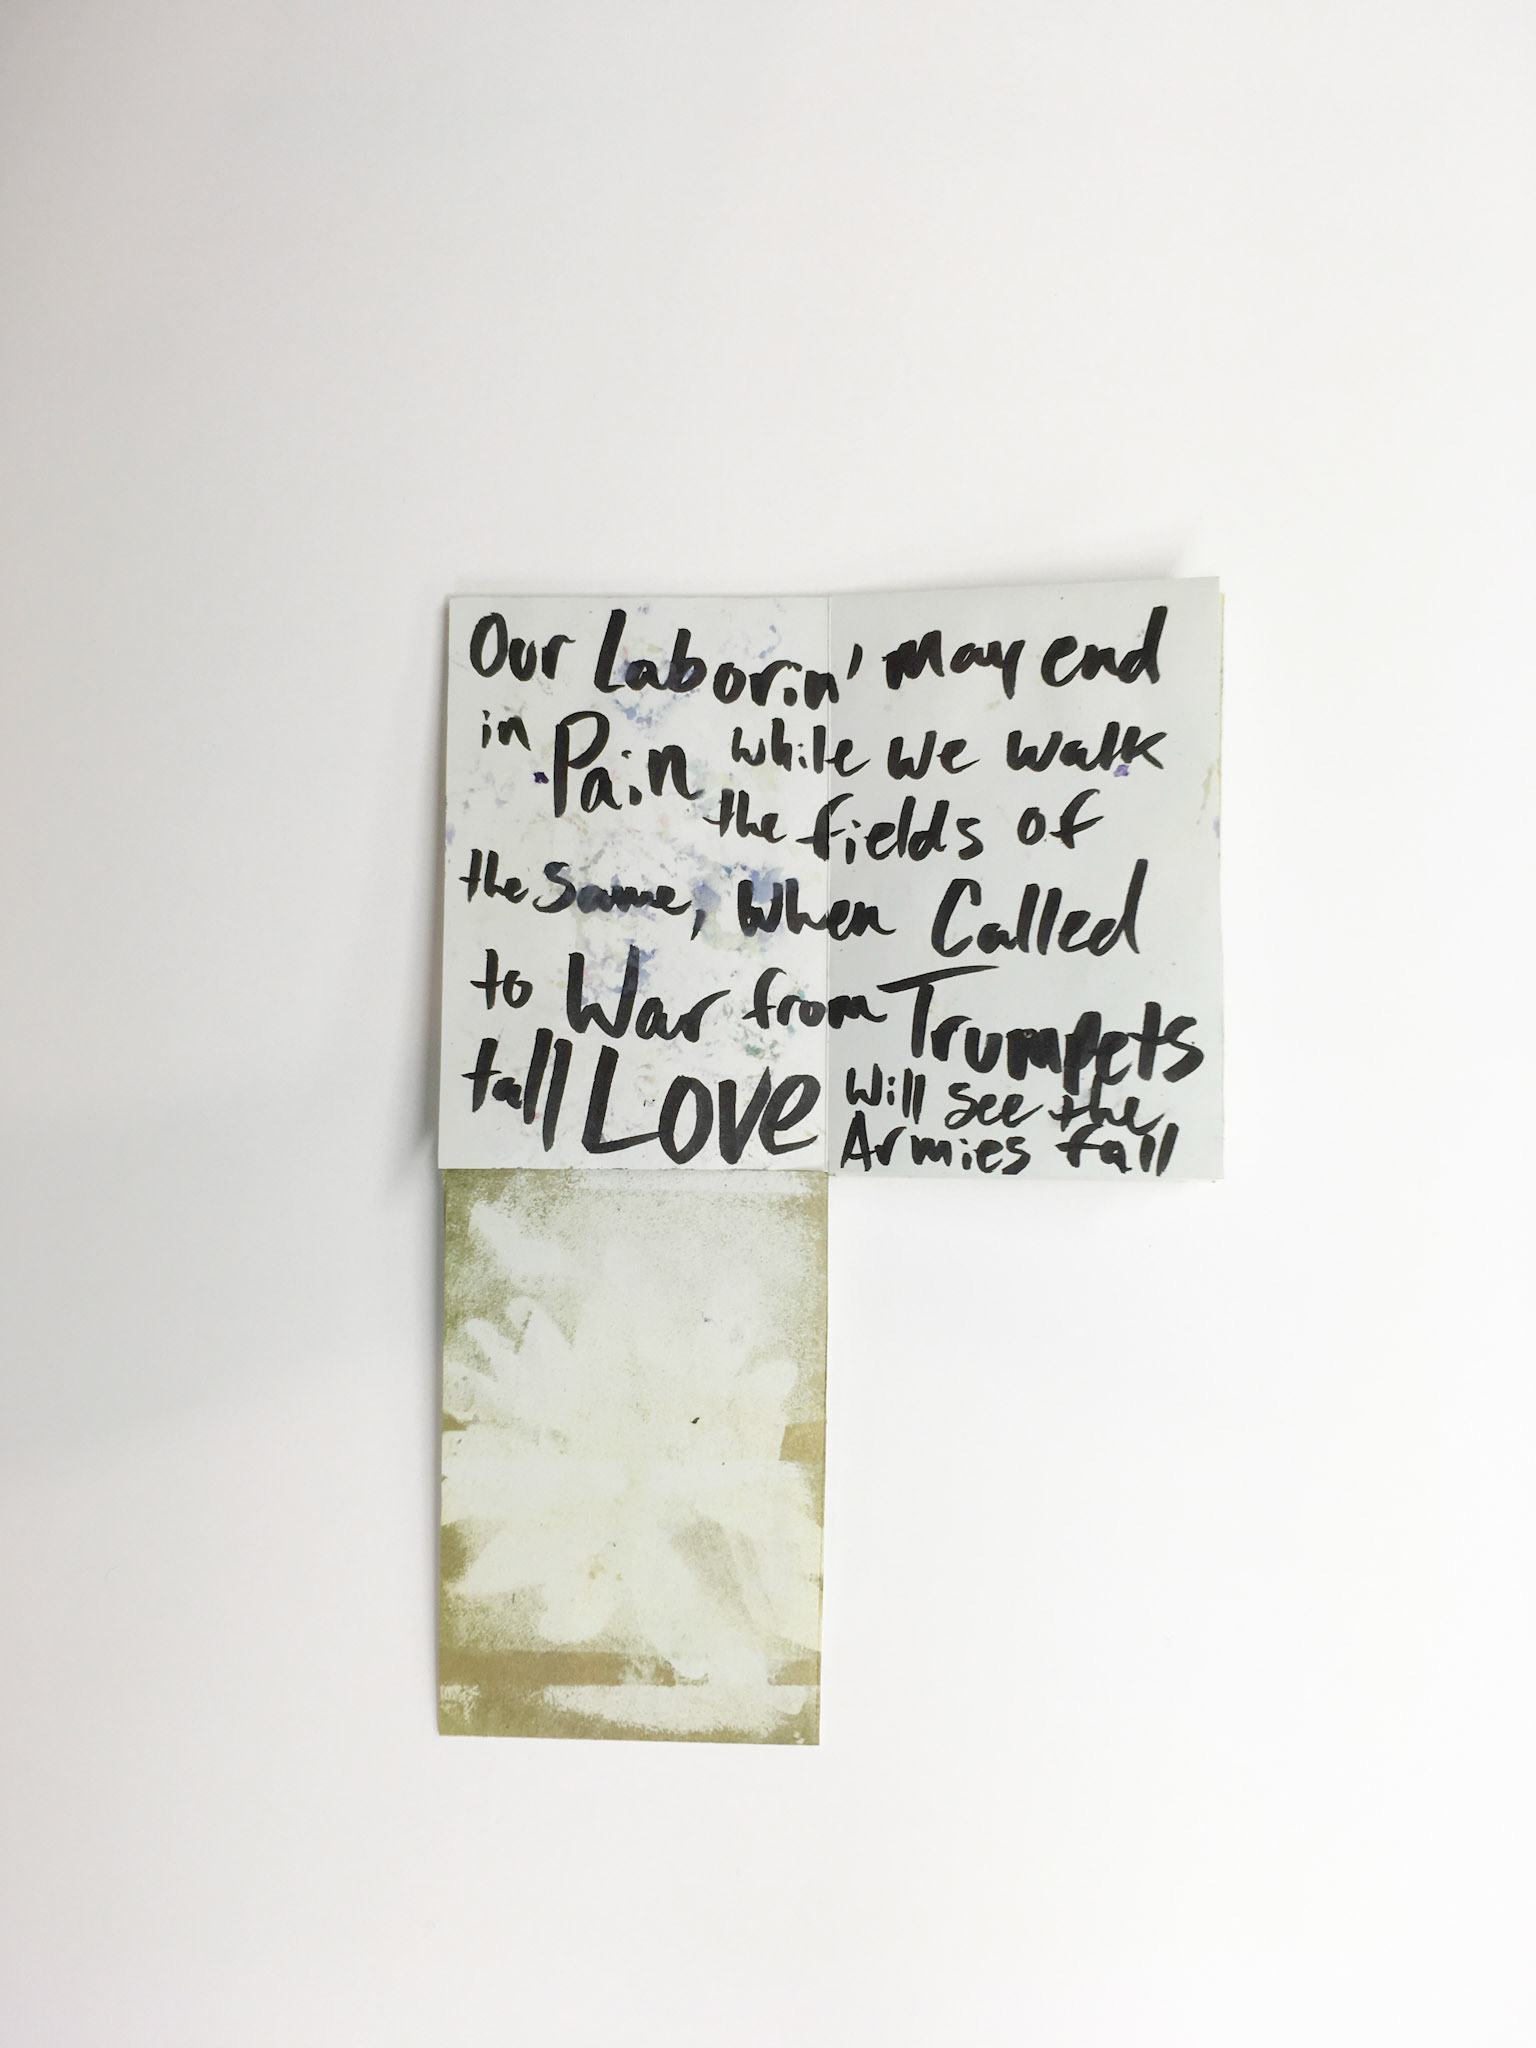 Our Laborin' may end
in Pain while we walk
the fields of
the same, when Called
to War from Trumpets
tall Love will see the
Armies fall